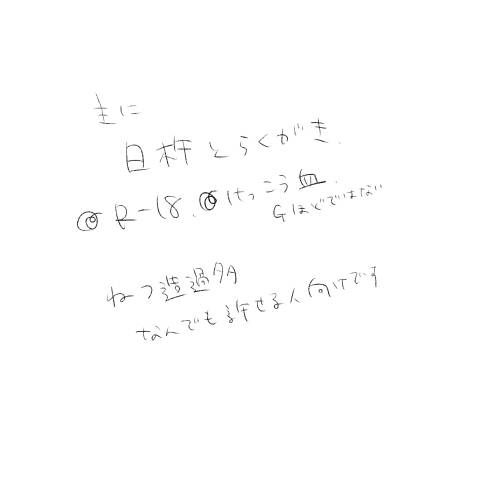 主に
日杵とらくがき.
◎R-18.◎けっこう血.
Gほどではない
ねつ造過多
なんでも許せる人向けです